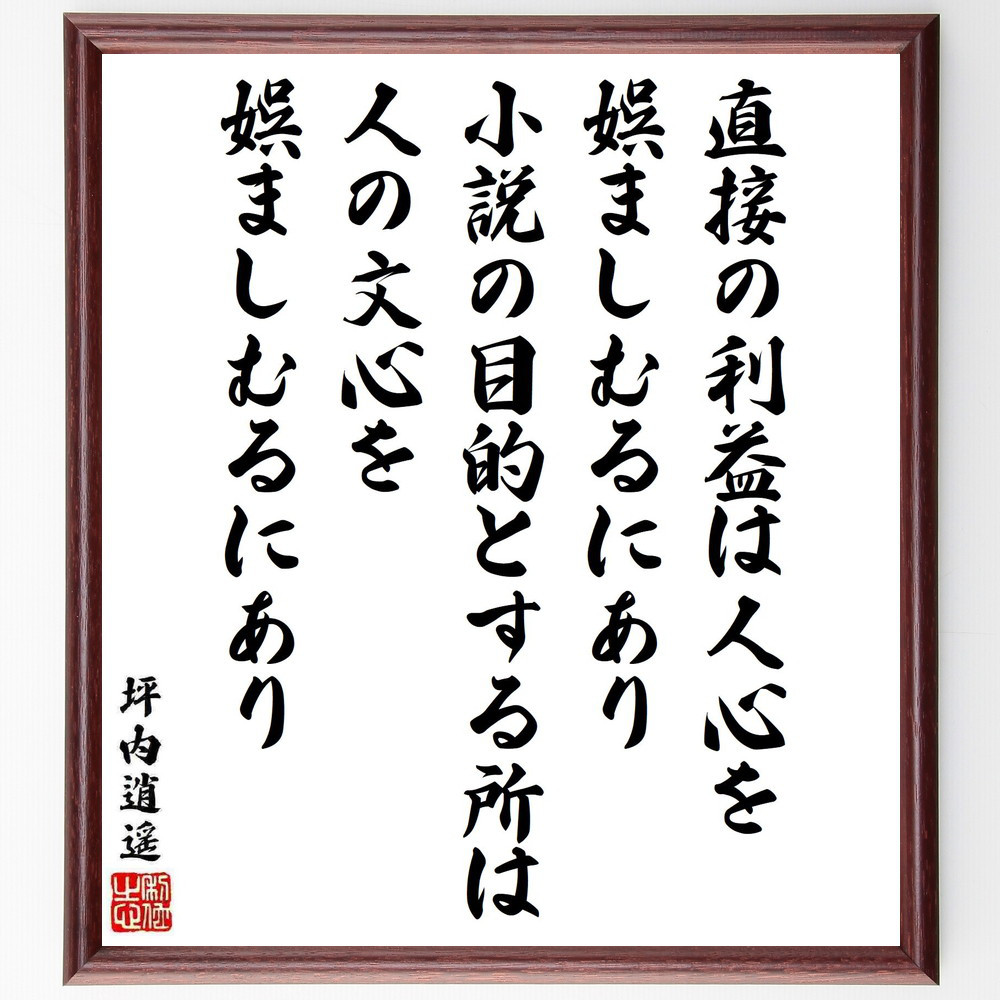 直接の利益は人心を
娯ましむるにあり
小説の目的とする所は
人の文心を
娯ましむるにあり
坪内逍遥